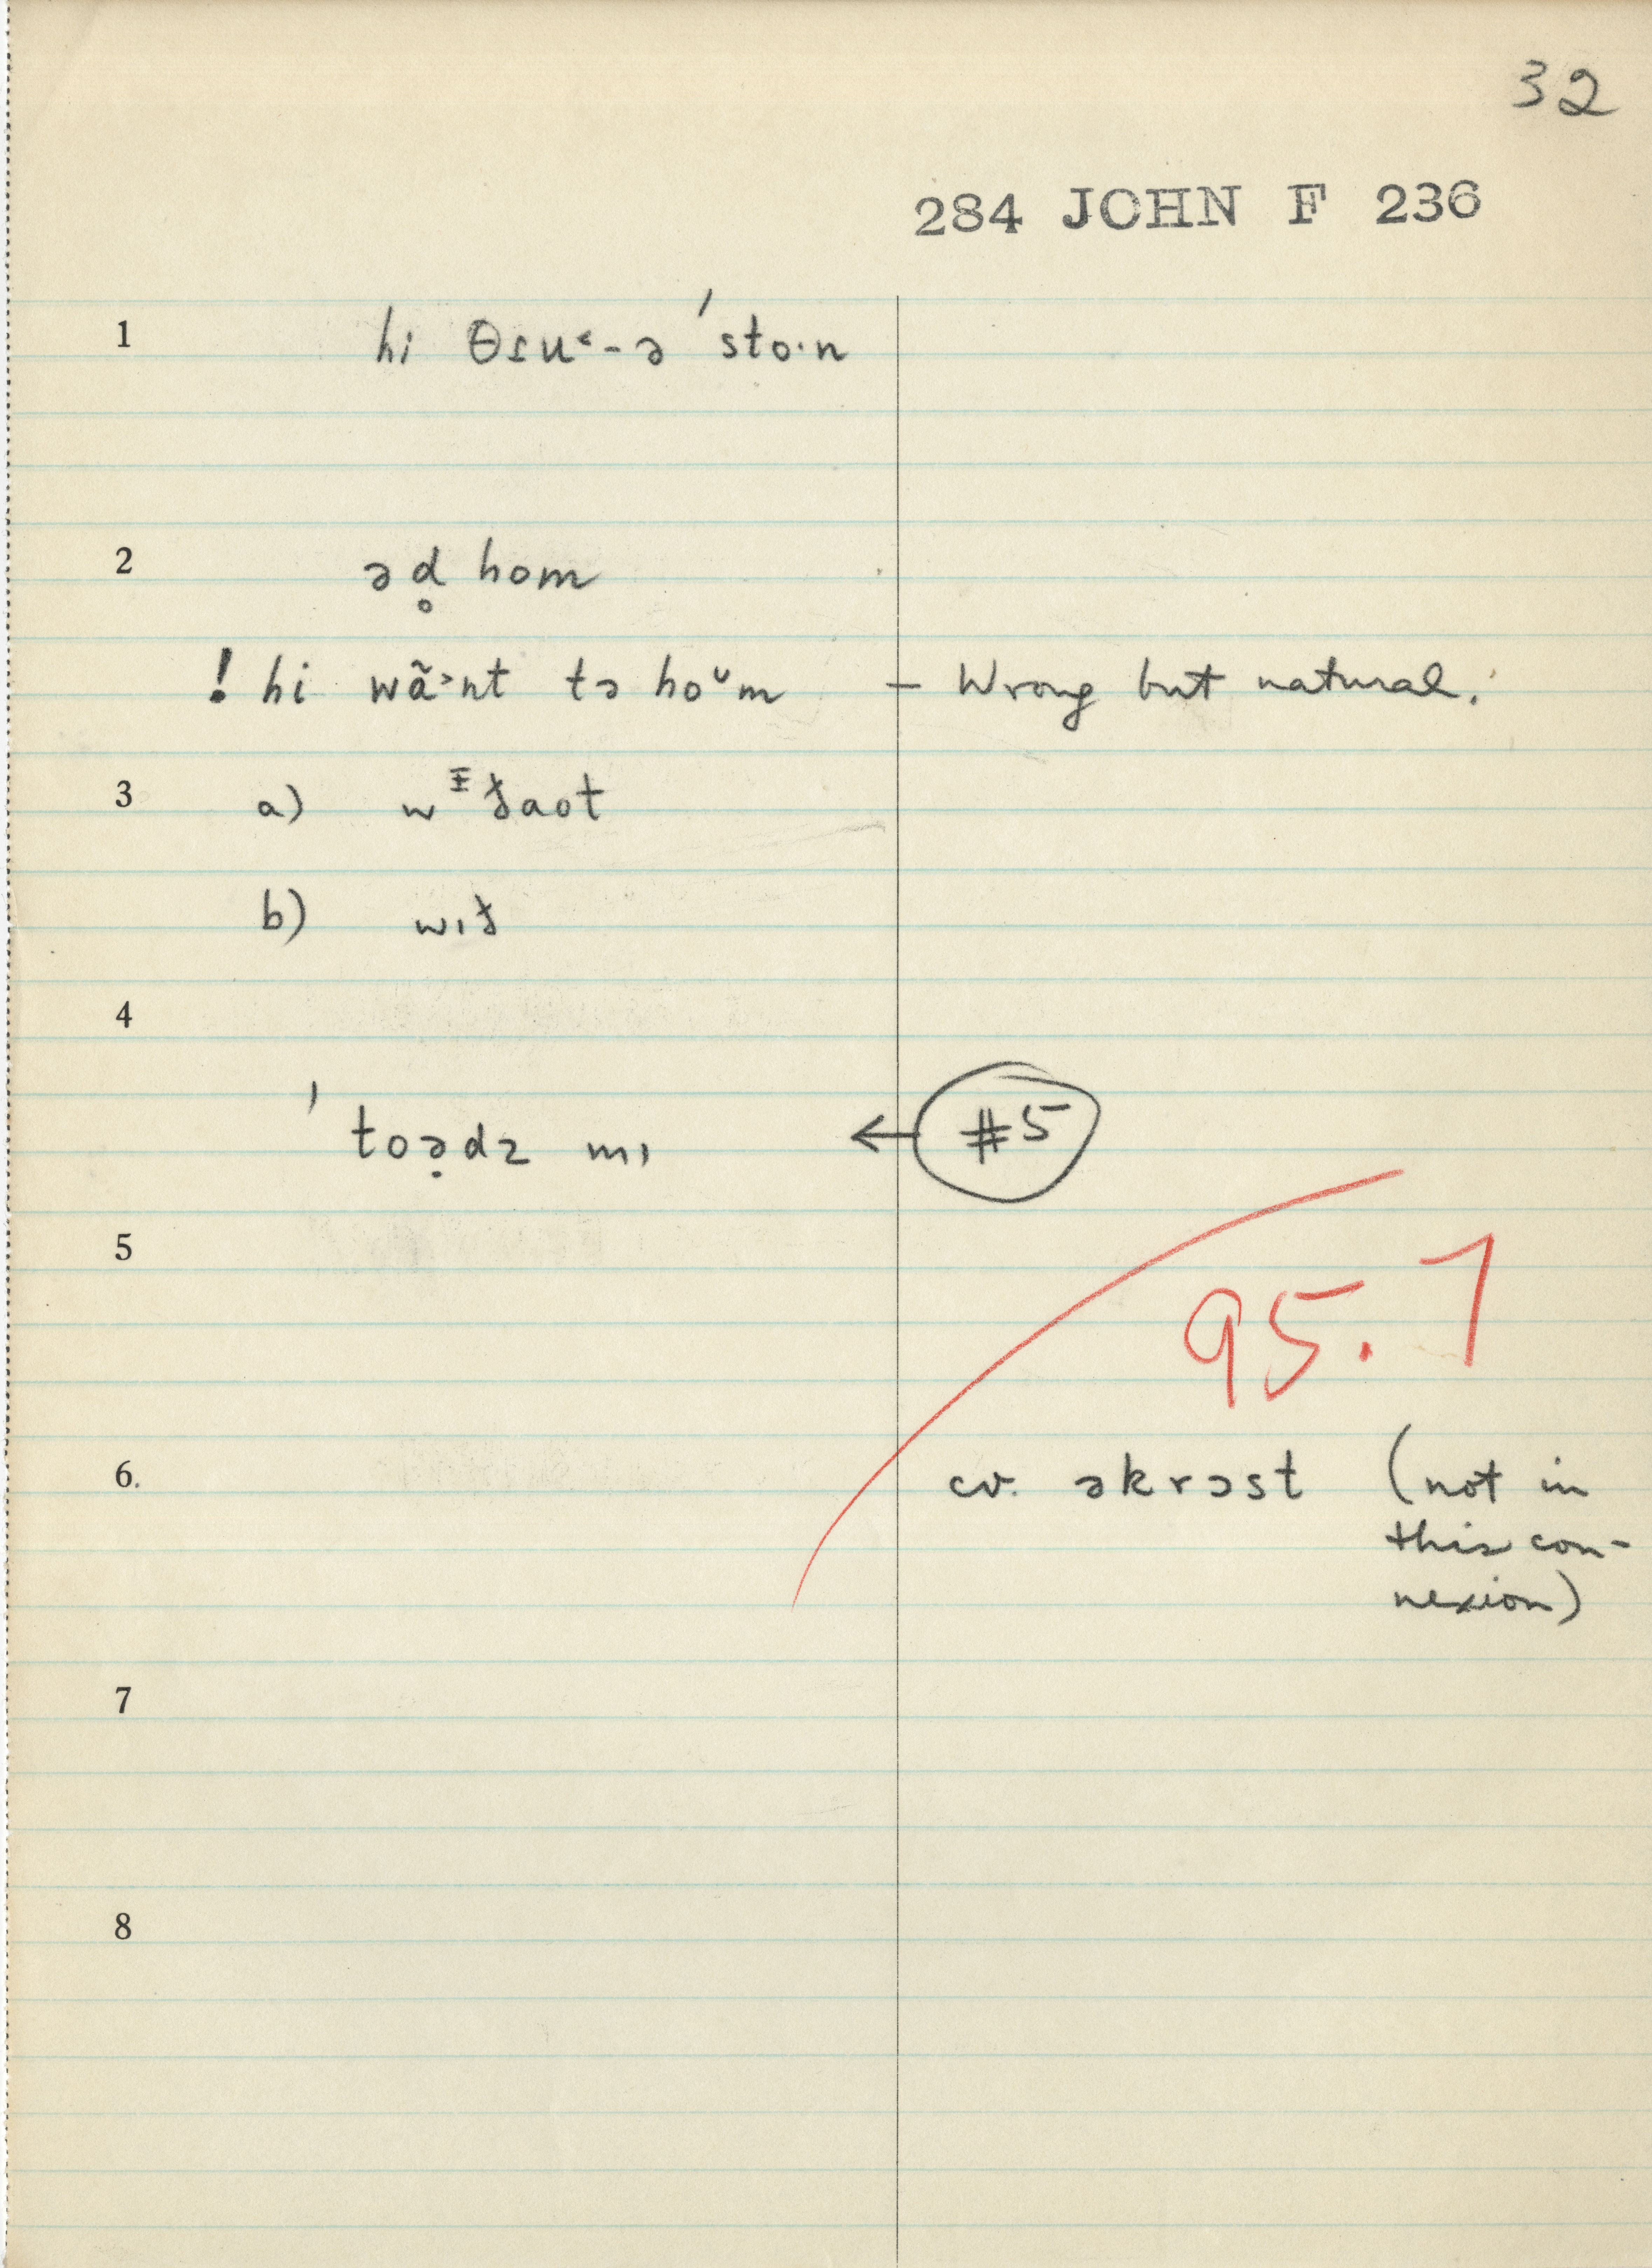 32
284 JOHN F 236
1 hi θɪu˂-ə ˈsto·n
2 əd̥ hom
! hi wã˃nt tə hoᵕm – Wrong but natural.
3 a) wᵻðaot
b) wɪð
4
ˈtoə̣dz mɪ ← #5
5
95.7
6. cv. əkrɔst (not in
this con-
nexion)
7
8